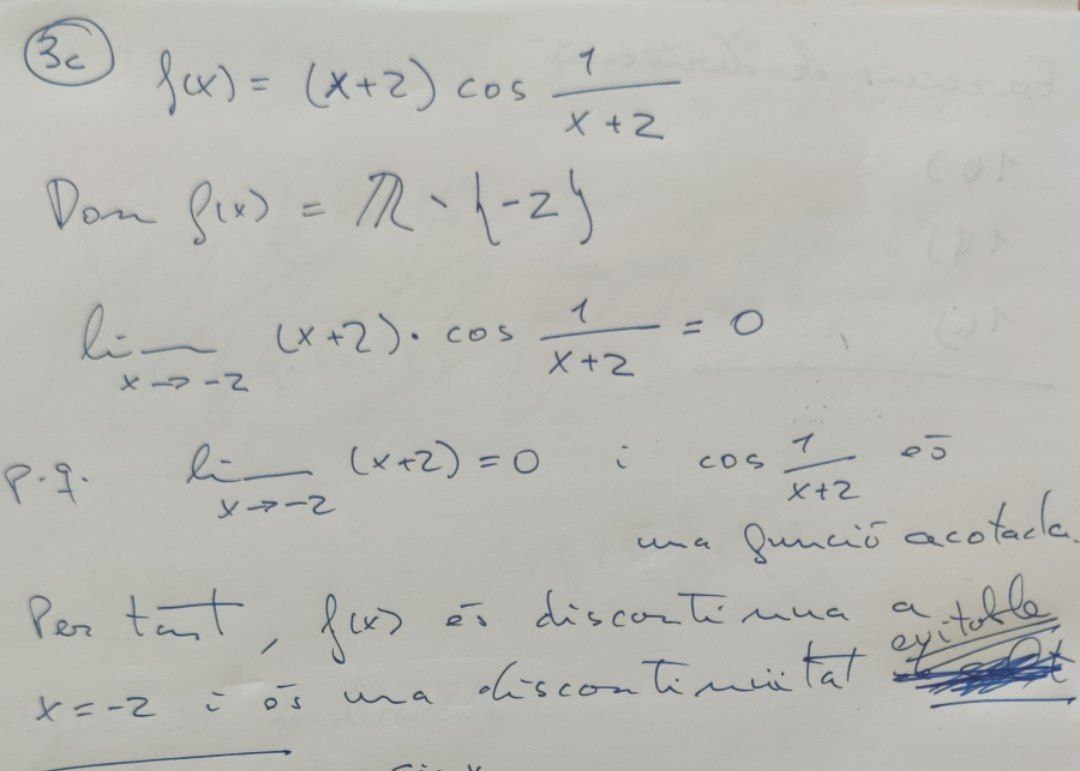 3c
f(x) = (x+2) cos 1/(x+2)
Dom f(x) = ℝ \ {-2}
lim x→-2 (x+2) · cos 1/(x+2) = 0
p.q. lim x→-2 (x+2) = 0 i cos 1/(x+2) és
una funció acotada.
Per tant, f(x) és discontinua a
x = -2 i és una discontinuïtat evitable